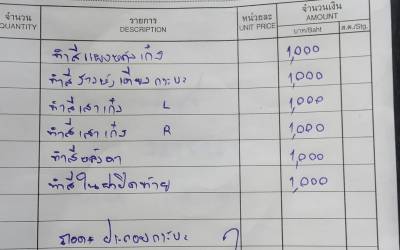 จำนวน รายการ หน่วยละ จำนวนเงิน
QUANTITY DESCRIPTION UNIT PRICE AMOUNT
บาท/Baht ส.ต./Stg.
ทำสีแผงหลังเก๋ง 1,000
ทำสี กระบะ 1,000
ทำสีเสาเก๋ง L 1,000
ทำสีเสาเก๋ง R 1,000
ทำสีหลังคา 1,000
ทำสีในฝาปิดท้าย 1,000
ประกอบกระบะ